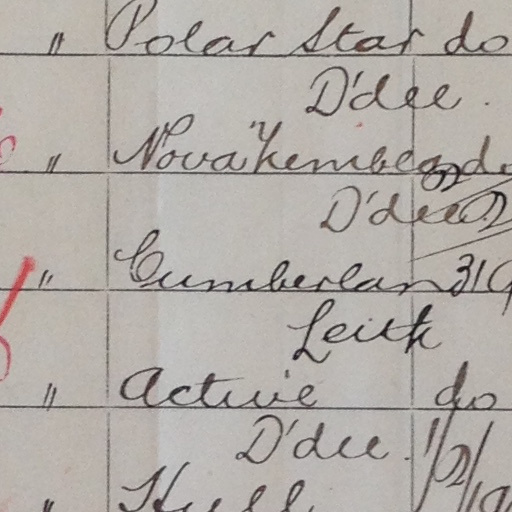 " Polar Star do
D'dee.
" Nova Zembla do
D'dee
" Cumberland 31
Leith
" Active do
D'dee. 1/2/19
" Hull